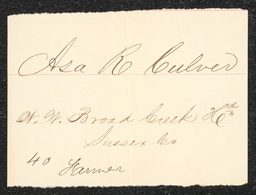 Asa R Culver
N. W. Broad Creek Hd
Sussex Co
40
Farmer